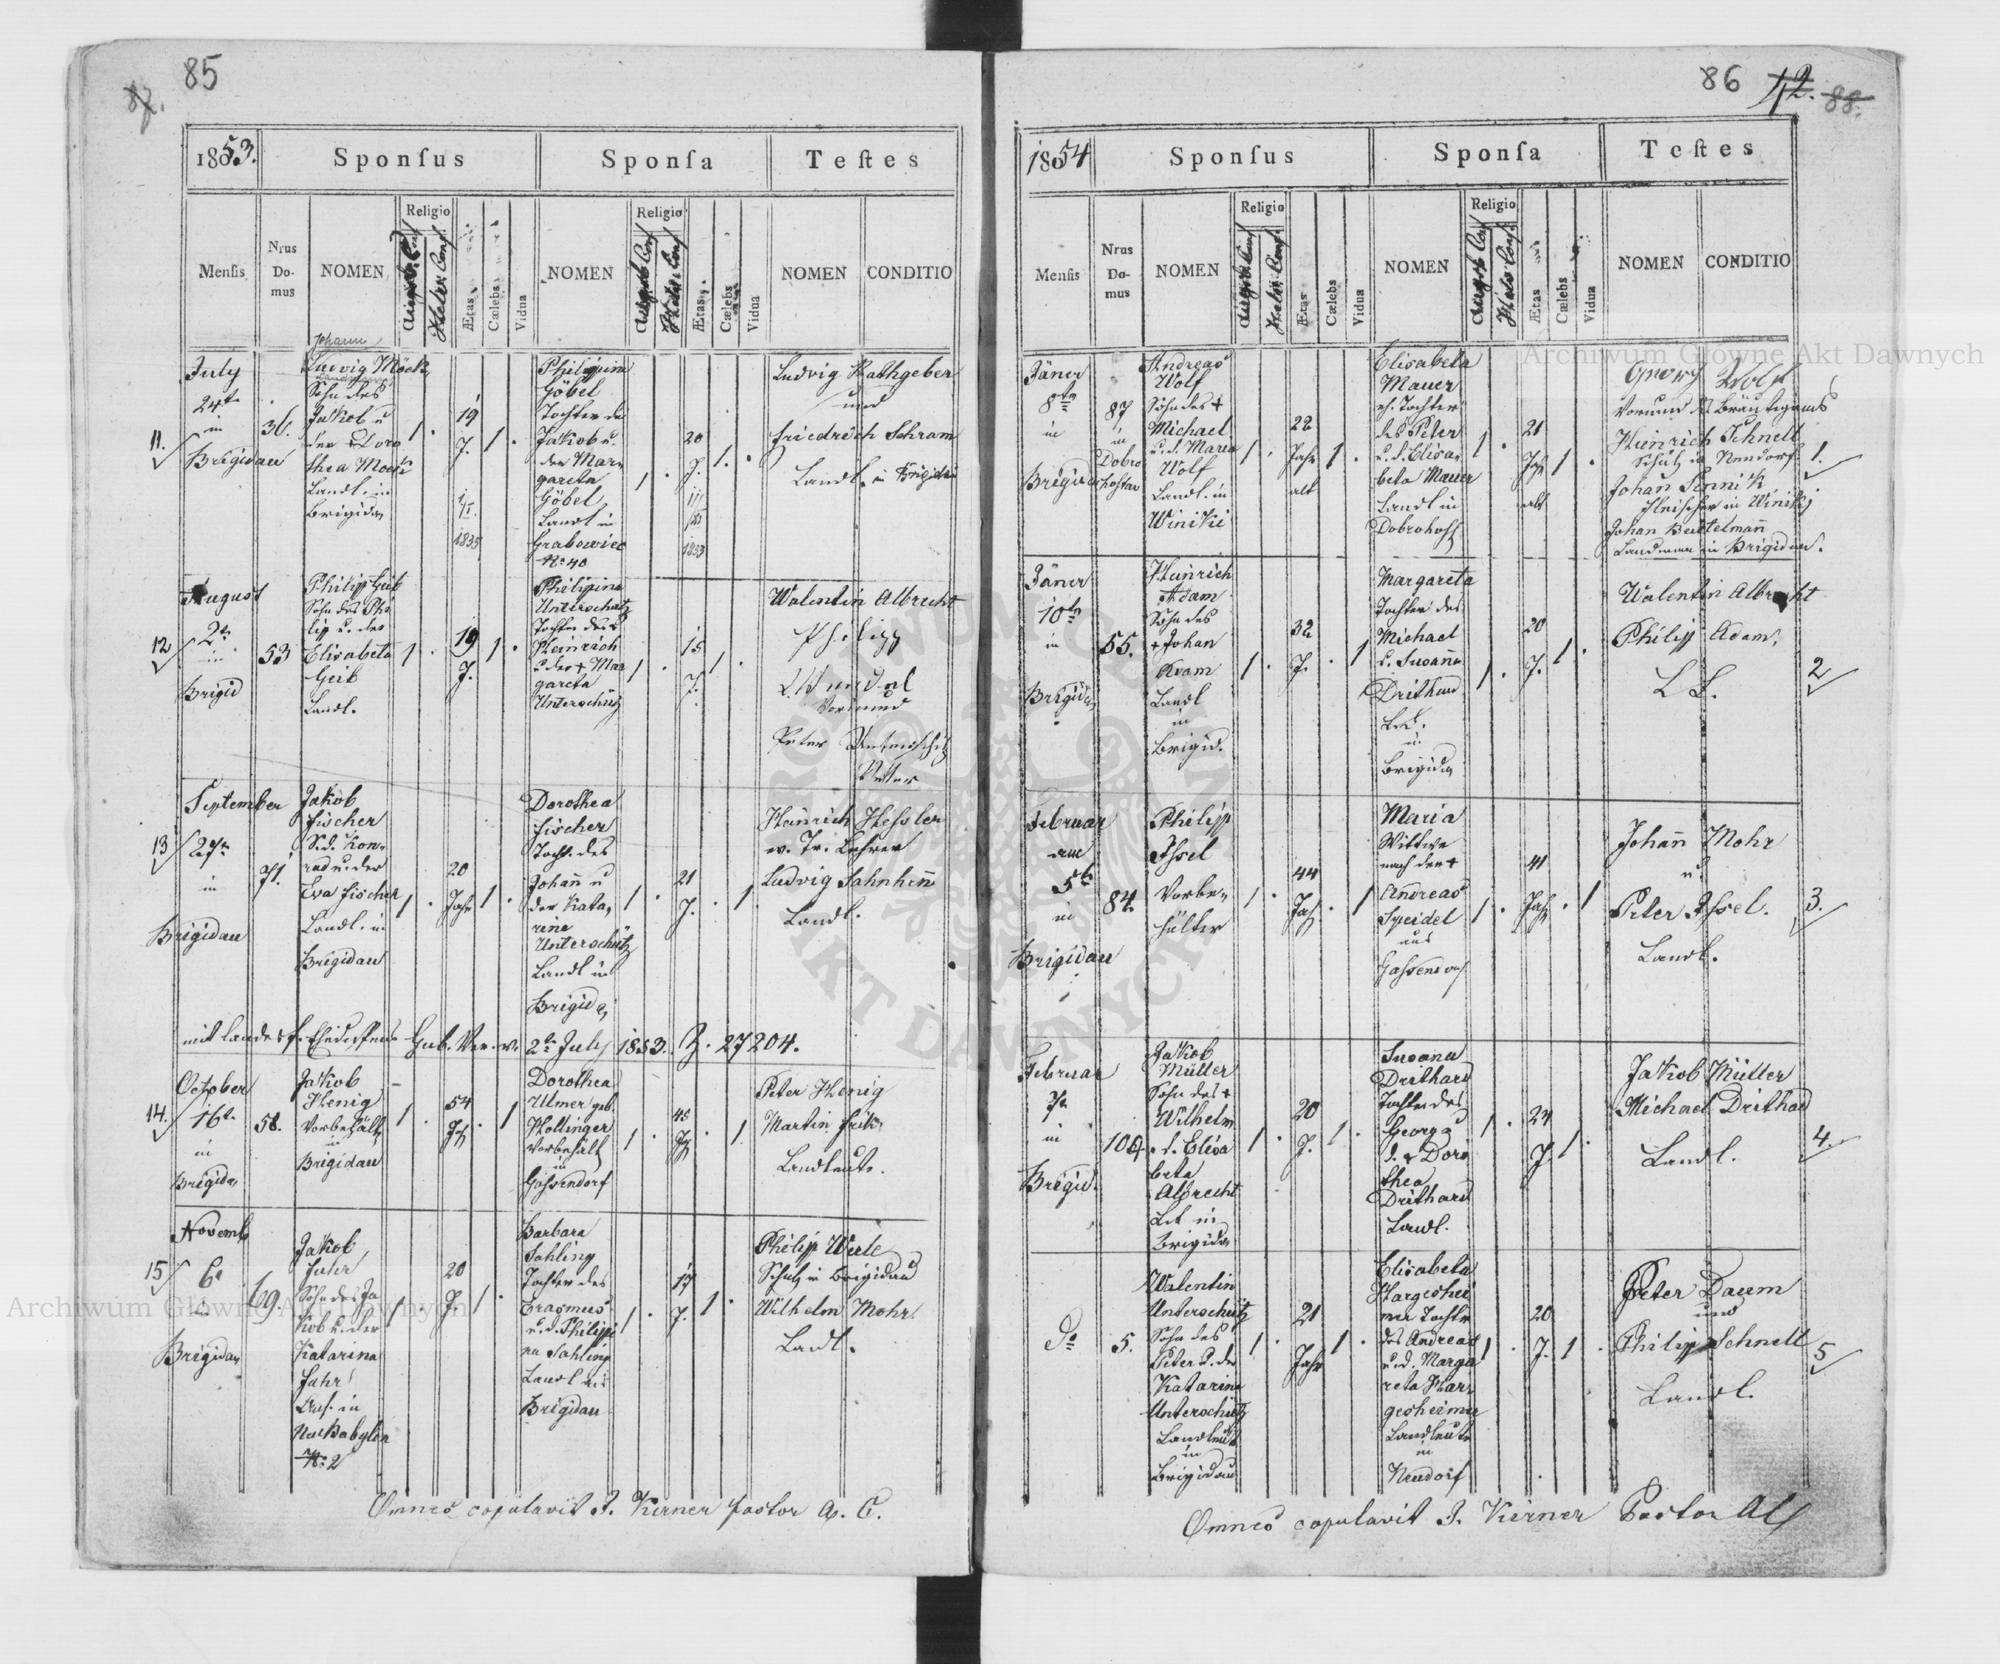 85
87.
1853.
Sponſus
Sponſa
Teſtes
Menſis
Nrus Do-mus
NOMEN
Religio
Ætas
Cælebs
Vidua
NOMEN
Religio
Ætas
Cælebs
Vidua
NOMEN
CONDITIO
11.
July
24t
in
Brigidau
36.
Johann
Ludwig Möck,
Sohn des
Jakob u
der Doro
thea Mock
Landl. in
Brigidau
1
19
J.
1/I.
1835
1
Philippina
Göbel
Tochter des
Jakob u.
der Mar,
gareta
Göbel
Landl in
Grabowiec
No 40
1
20
J.
1833
1.
Ludwig Rathgeber
und
Friedrich Schram
Landl. in Brigidau
12
August
2n
in
Brigid
53
Philipp Geib
Sohn des Phi
lipp u. der
Elisabeta
Geib
Landl.
1
19
J.
1
Philipina
Unterschütz
Tochter des
Heinrich
u der + Mar
gareta
Unterschütz
1
15
J.
1
Walentin Albrecht
Philipp
Wendel
Vormund
Peter Unterschütz
Vetter
13
September
27n
in
Brigidau
71.
Jakob
Fischer
S. d. Kon,
rad u. der
Eva Fischer
Landl. in
Brigidau
1
20
Jahr
1
Dorothea
Fischer
Tocht. des
Johañ u
der Kata,
rina
Unterschütz
Landl in
Brigida,
1
21
J.
1
Heinrich Hessler
ev. Tr. Lehrer
Ludwig Sahnheñ
Landl.
mit Landesf. Ehedispens Gub. Ver. v. 2n July 1853. Z. 27204.
14.
October
16t
in
Brigida,
58.
Jakob
Henig
Vorbehält
in
Brigidau
1
54
1
Dorothea
Ulmer geb.
Hollinger
Vorbehält
in
Gassendorf
1
45
1
Peter Henig
Martin Frik
Landleute.
15
Novemb
6t
in
Brigidau
69.
Jakob
Jahr
Sohn des Ja
kob u. der
Katarina
Jahr
in
Neubabylon
No 2
1
20
J.
1
Barbara
Sahling
Tochter des
Erasmus
u. d. Philippi
na Sahling
Landl in
Brigidau
1
17
J.
1
Philipp Weite
Schulz in Brigidau
Wilhelm Mohr
Landl.
Omnes copulavit J. Kerner pastor A. C.
86
42.
88.
1854
Sponſus
Sponſa
Teſtes
Menſis
Nrus Do-mus
NOMEN
Religio
Ætas
Cælebs
Vidua
NOMEN
Religio
Ætas
Cælebs
Vidua
NOMEN
CONDITIO
Jäner
8tn
in
Brigidau
87
in
Dobro
hostow
Andreas
Wolf
Sohn des +
Michael
u. d. Maria
Wolf
Landl. in
Winiki
1
22
Jahr
alt
1
Elisabeta
Mauer
eh. Tochter
des Peter
u. d. Elisa,
beta Mauer
Landl in
Dobrohost
1
21
Jahr
alt
1
Georg Wolf
Vormund d. Bräutigams
Heinrich Schnell
Schulz in Neudorf
Johañ Sennik
Fleischer in Winiki
Johan Beutelmañ
Landman in Brigidau.
1.
Jäner
10tn
in
Brigidau
55.
Heinrich
Adam
Sohn des
+ Johan
Adam
Landl
in
Brigid.
1
32
J.
1
Margareta
Tochter des
Michael
u. Susaña
Drithard
in
Brigida
1
20
J.
1
Walentin Albrecht
Philipp Adam,
L L.
2
Februar
am
5t
in
Brigidau
84.
Philipp
Issel
Vorbe,
hälter
1
44
Jah.
1
Maria
Wittwe
nach dem +
Andreas
Speidel
aus
Gassendorf
1
41
Jah
1
Johañ Mohr
u.
Peter Issel.
Landl.
3.
Februar
7t
in
Brigid.
106.
Jakob
Müller
Sohn des +
Wilhelm
u. d. Elisa
beta
Albrecht
in
Brigida
1
20
J.
1
Susana
Drithard
Tochter des
Georg u
d. + Doro
thea
Drithard
Landl.
1
24
J.
1
Jakob Müller
Michael Drithard
Landl.
4.
do
5.
Walentin
Unterschütz
Sohn des
Peter u. der
Katarina
Unterschütz
Landleut
in
Brigidau
1
21
Jahr
1
Elisabeta
Hargeshei
mer Tochter
des Andreas
u. d. Marga
reta Har,
gesheimer
Landleute
in
Neudorf
1
20
J.
1
Peter Daum
und
Philipp Schnell
Landl.
5
Omnes copulavit J. Kerner Pastor AC
Archiwum Główne Akt Dawnych
Archiwum Główne Akt Dawnych